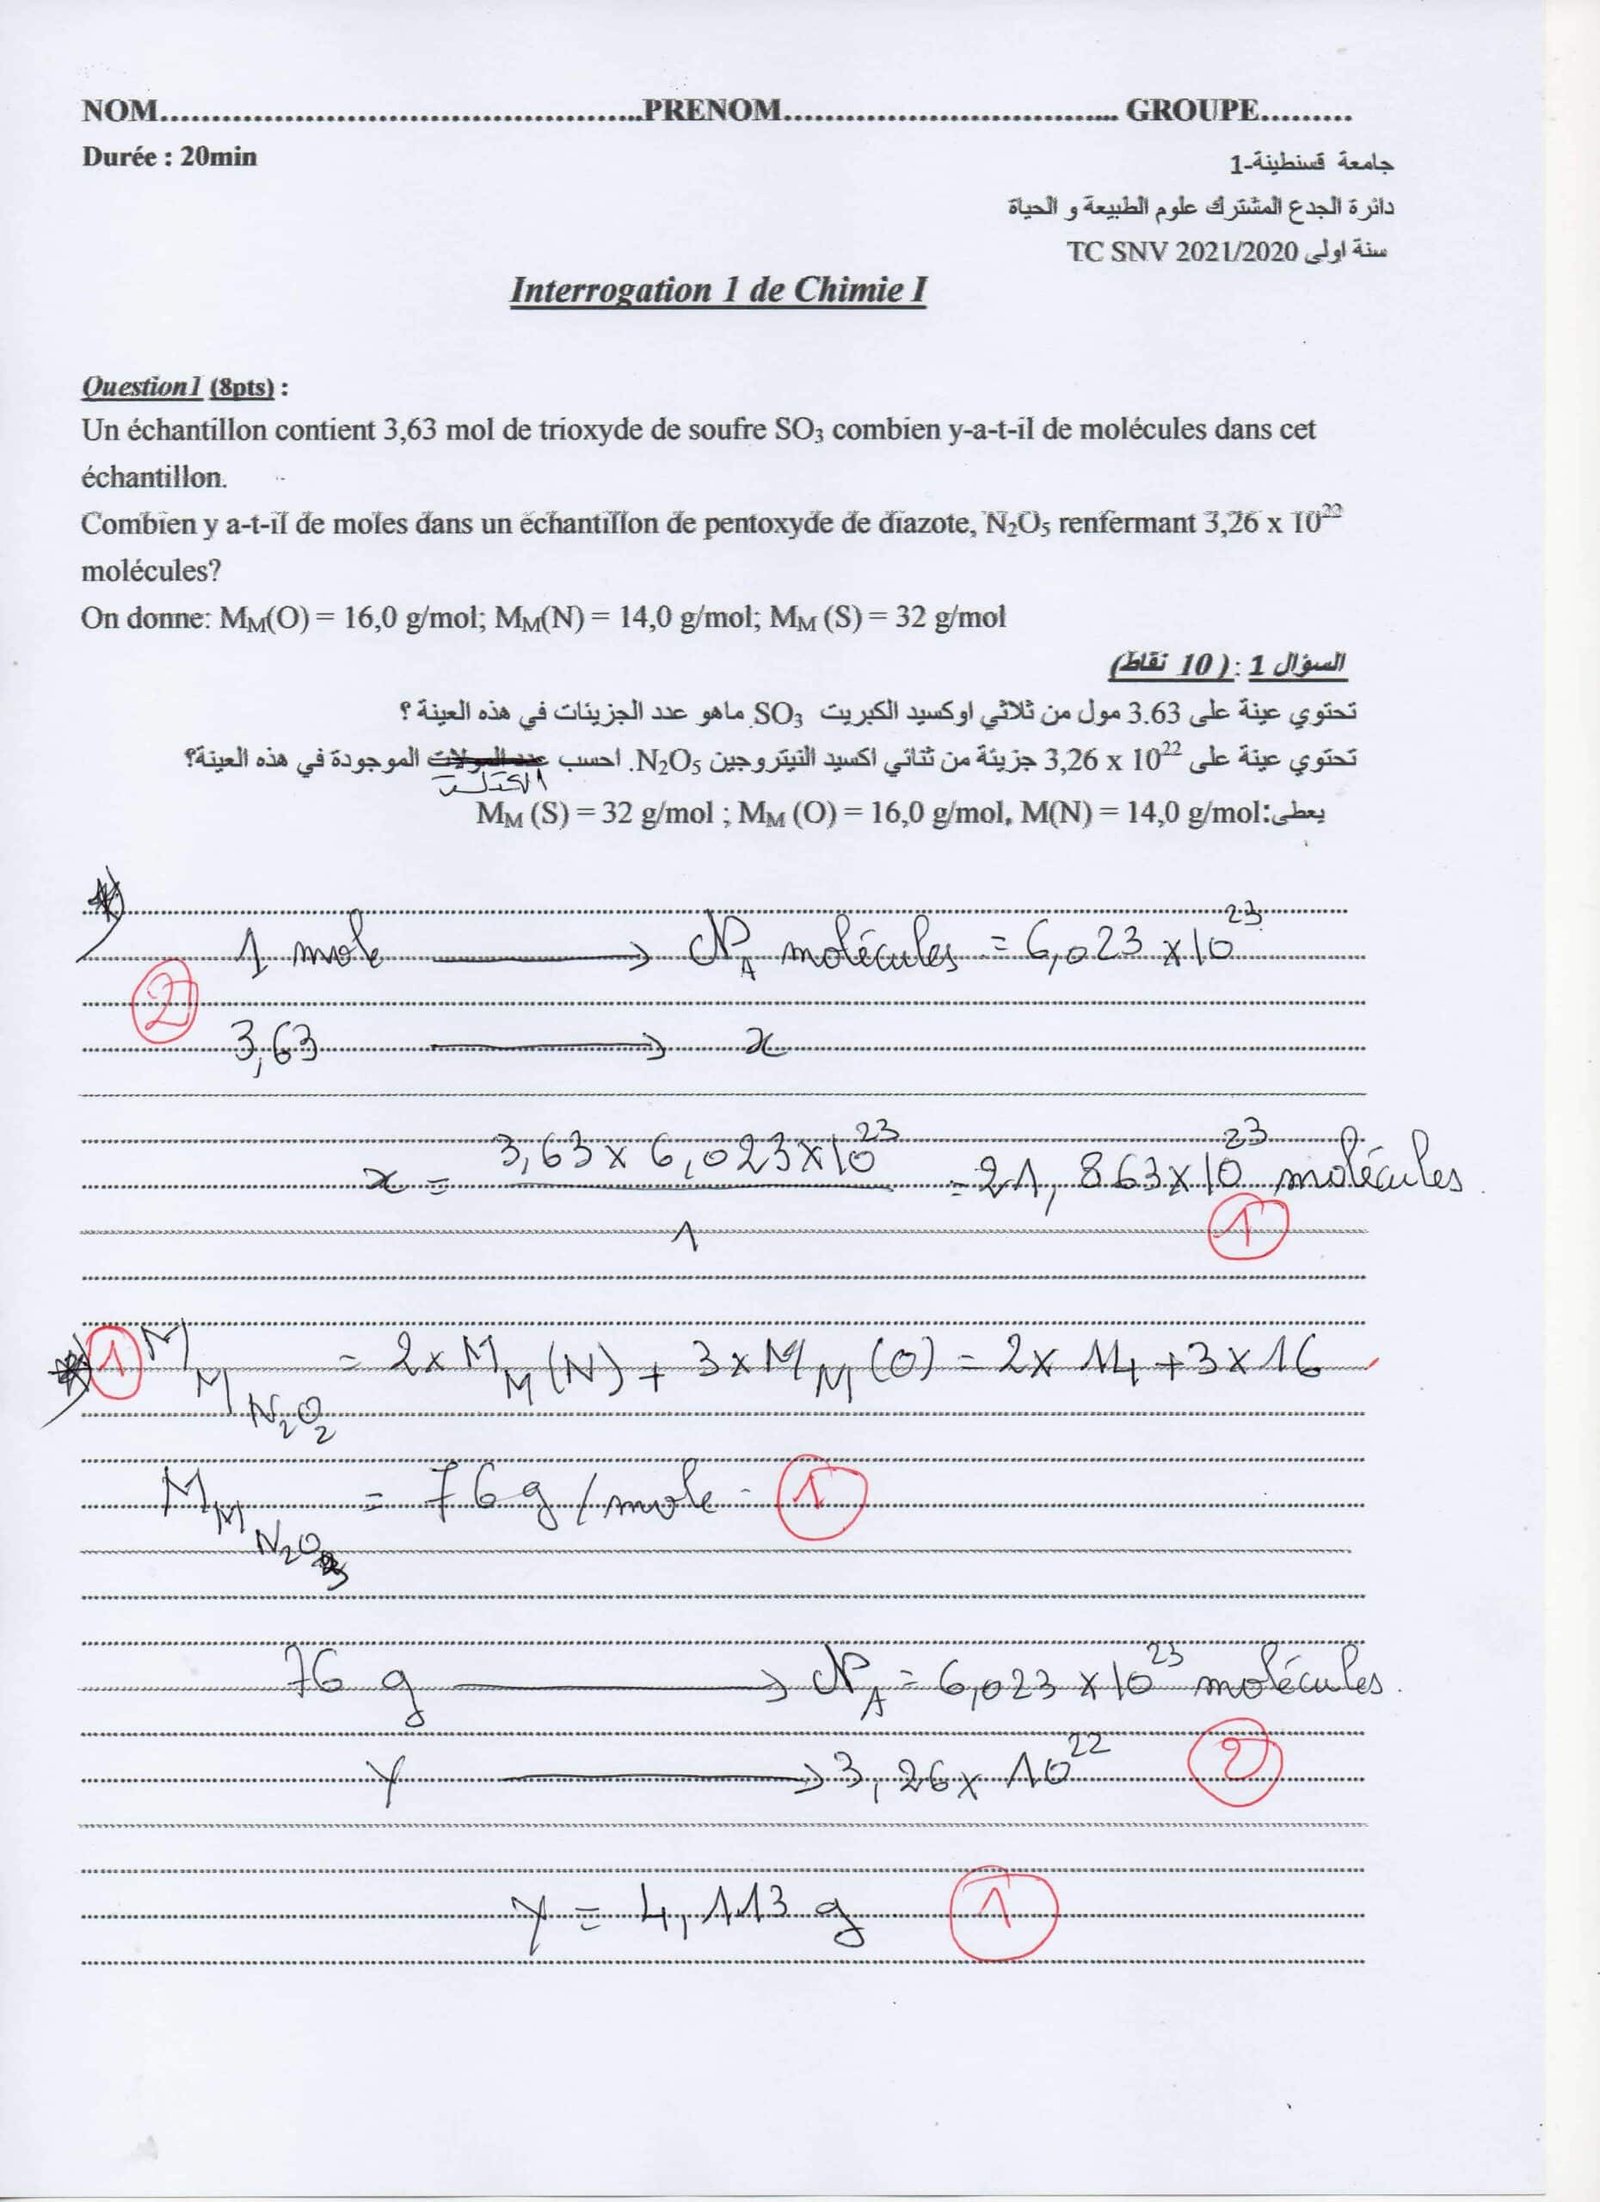 NOM……………………………………………..PRENOM……………………………….. GROUPE………
Durée : 20min
جامعة قسنطينة-1
دائرة الجدع المشترك علوم الطبيعة و الحياة
سنة اولى TC SNV 2021/2020
Interrogation 1 de Chimie I
Question1 (8pts) :
Un échantillon contient 3,63 mol de trioxyde de soufre SO₃ combien y-a-t-il de molécules dans cet
échantillon.
Combien y a-t-il de moles dans un échantillon de pentoxyde de diazote, N₂O₅ renfermant 3,26 x 10²²
molécules?
On donne: M_M(O) = 16,0 g/mol; M_M(N) = 14,0 g/mol; M_M (S) = 32 g/mol
السؤال 1 : ( 10 نقاط)
تحتوي عينة على 3.63 مول من ثلاثي اوكسيد الكبريت SO₃ ماهو عدد الجزيئات في هذه العينة ؟
تحتوي عينة على 3,26 x 10²² جزيئة من ثنائي اكسيد النيتروجين N₂O₅. احسب عدد المولات الموجودة في هذه العينة؟
الكتلة
يعطى: M_M (S) = 32 g/mol ; M_M (O) = 16,0 g/mol, M(N) = 14,0 g/mol
1 mole → N_A molécules = 6,023 x 10²³
②
3,63 → x
x = 3,63 x 6,023 x 10²³ / 1 = 21,863 x 10²³ molécules
①
① M_M N₂O₂ = 2 x M_M (N) + 3 x M_M (O) = 2 x 14 + 3 x 16
M_M N₂O₃ = 76 g / mole. ①
76 g → N_A = 6,023 x 10²³ molécules.
Y → 3,26 x 10²² ②
Y = 4,113 g ①